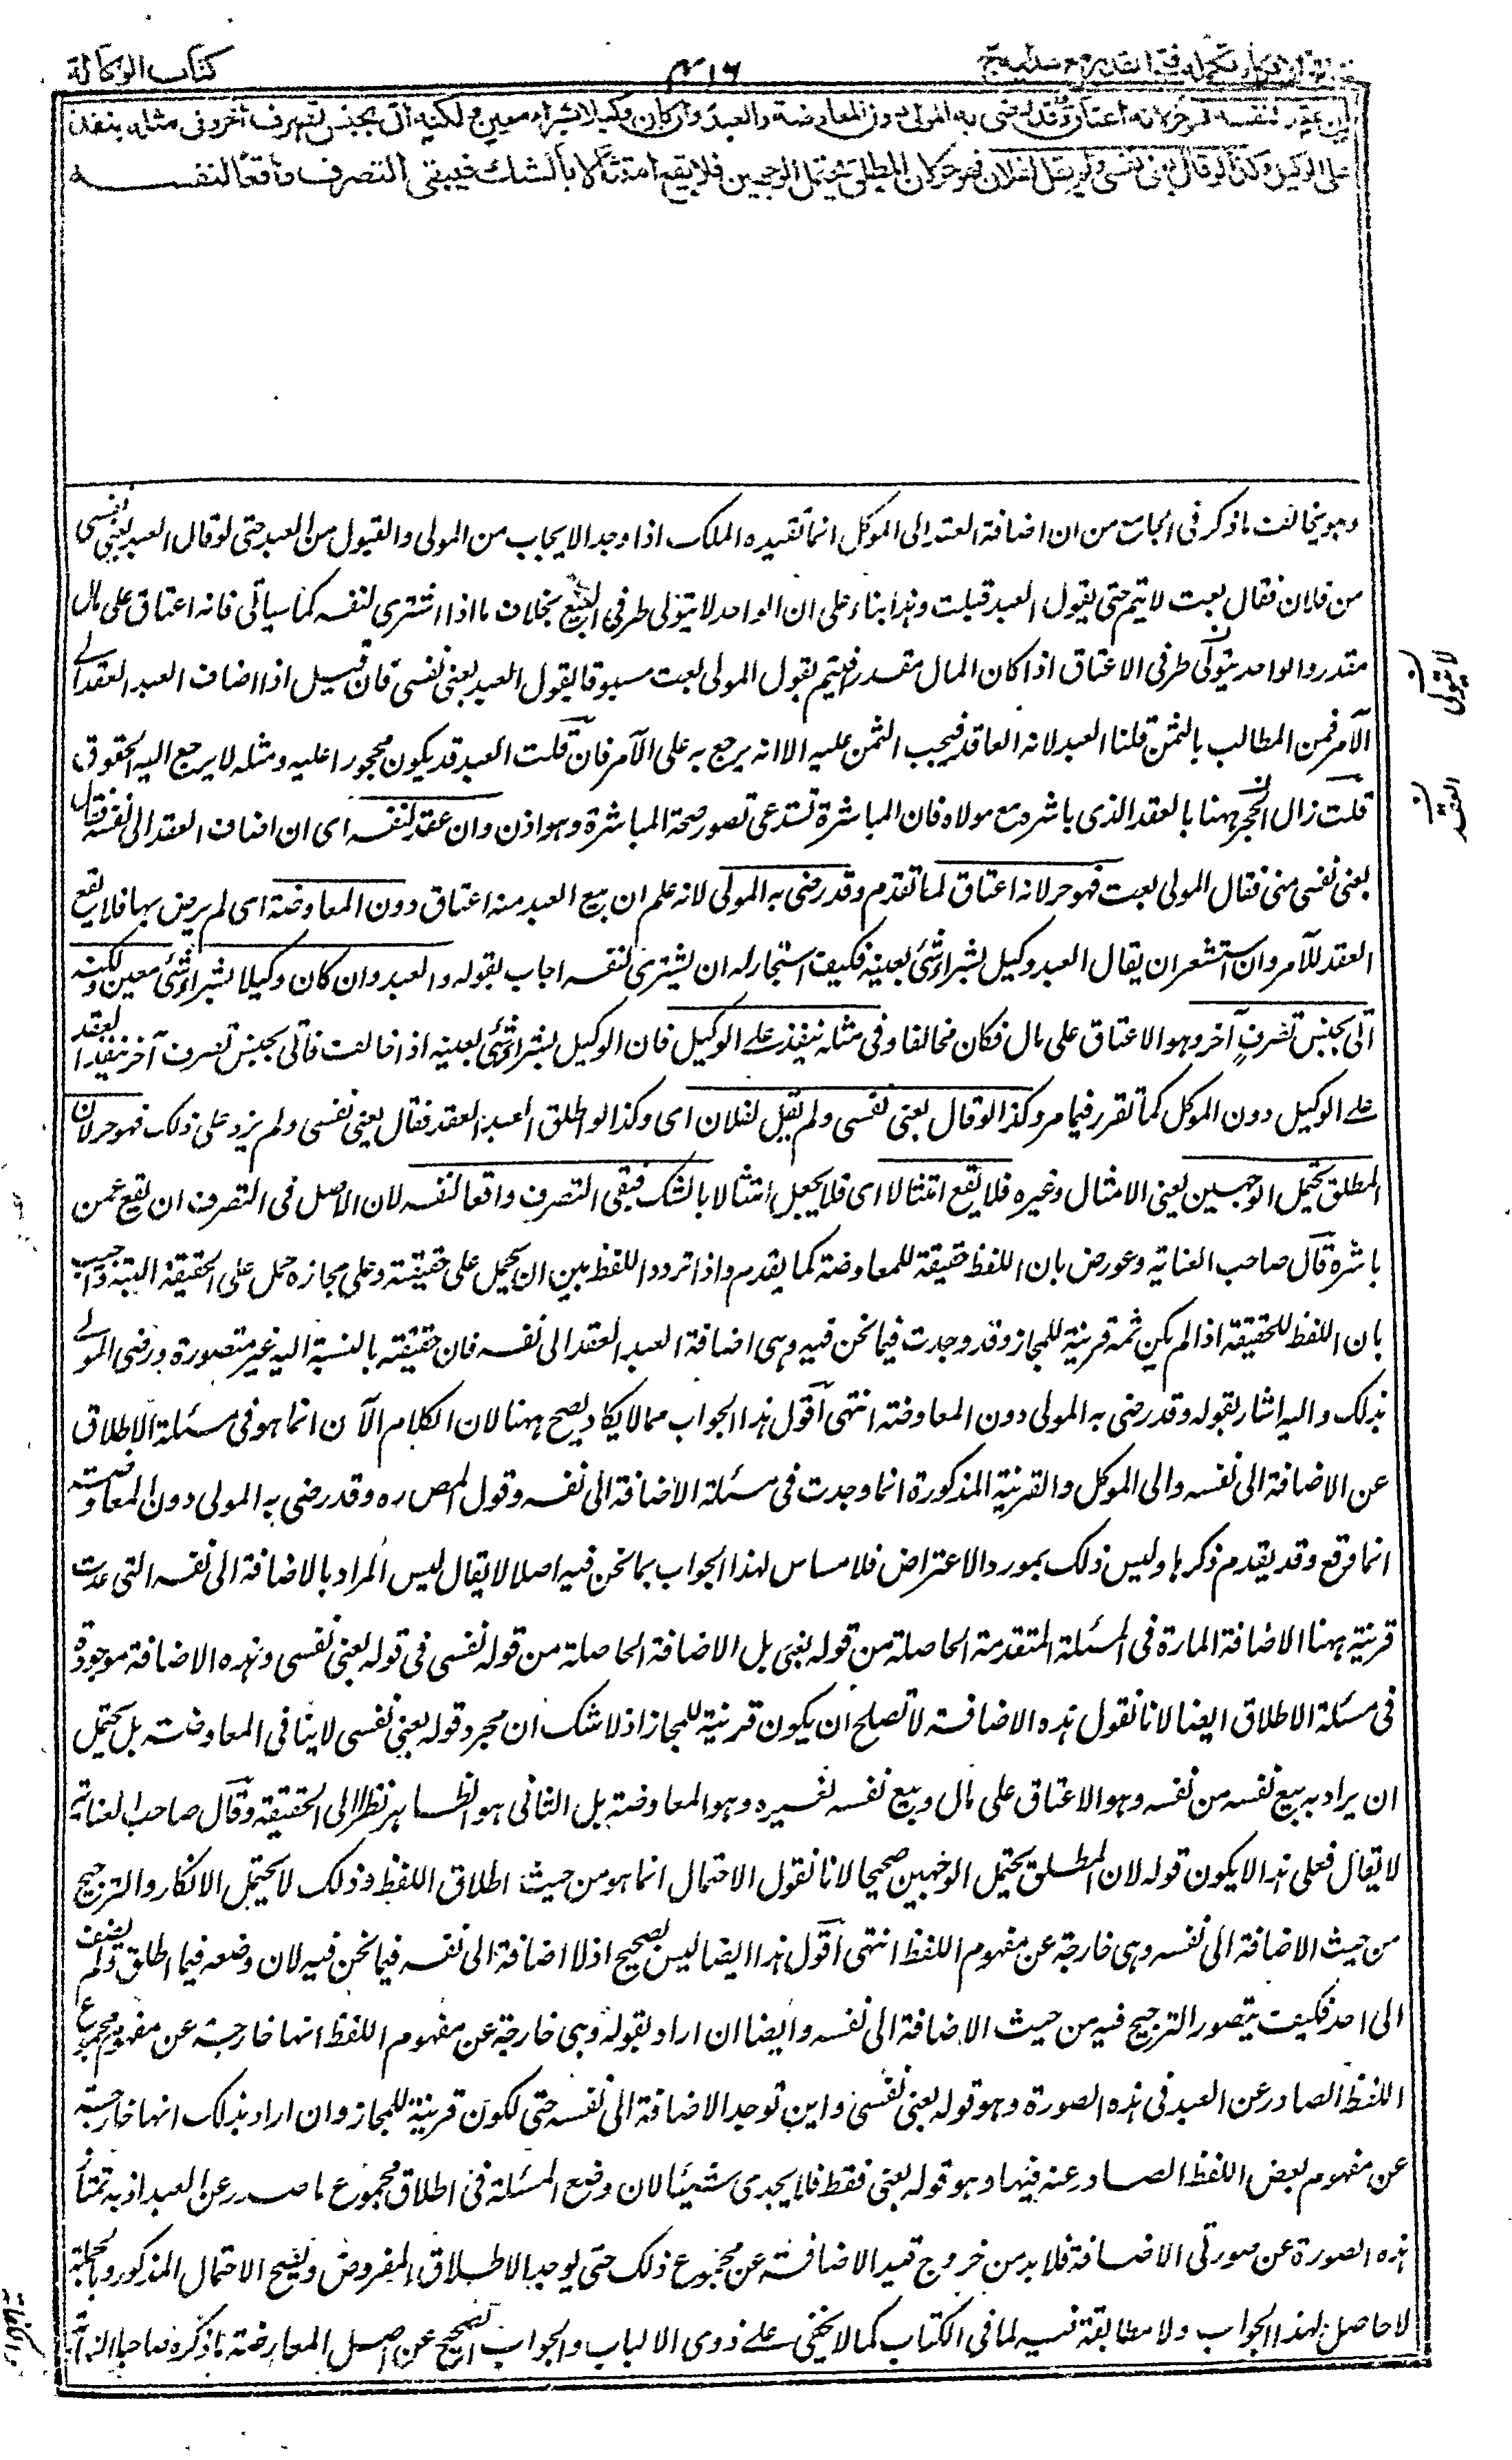 كتاب الوكالة
نتائج الافكار تكملة فتح القدير مع هداية ج
وان عقد لنفسه فهو حر لانه اعتاق وقد رضي به المولى دون المعاوضة والعبد وان كان وكيلا بشراء معين ولكنه اتى بجنس تصرف آخر وفي مثله ينفذ
على الوكيل وكذا لو قال بعني نفسي ولم يقل لفلان فهو حر لان المطلق يحتمل الوجهين فلا يقع امتثالا بالشك فيبقى التصرف واقعا لنفسه
وهو يخالف ما ذكر في الجامع من ان اضافة العقد الى الموكل انما تفيده الملك اذا وجد الايجاب من المولى والقبول من العبد حتى لو قال العبد بعني نفسي
من فلان فقال بعت لا يتم حتى يقول العبد قبلت وهذا بناء على ان الواحد لا يتولى طرفي البيع بخلاف ما اذا اشترى لنفسه كما سياتي فانه اعتاق على مال
مقدر والواحد يتولى طرفي الاعتاق اذا كان المال مقدرا فيتم بقول المولى بعت مسبوقا بقول العبد بعني نفسي فان قيل اذا اضاف العبد العقد الى
الآمر فمن المطالب بالثمن قلنا العبد لانه العاقد فيجب الثمن عليه الا انه يرجع به على الآمر فان قلت العبد قد يكون محجورا عليه ومثله لا يرجع اليه الحقوق
قلت زال الحجر ههنا بالعقد الذي باشره مع مولاه فان المباشرة تستدعي تصور صحة المباشرة وهو اذن وان عقد لنفسه اى ان اضاف العقد الى نفسه فقال
بعني نفسي مني فقال المولى بعت فهو حر لانه اعتاق لما تقدم وقد رضي به المولى لانه علم ان بيع العبد منه اعتاق دون المعاوضة اى لم يرض بها فلا يقع
العقد للآمر وان استشعر ان يقال العبد وكيل بشراء شئ بعينه فكيف استجاز له ان يشتري لنفسه اجاب بقوله والعبد وان كان وكيلا بشراء شئ معين ولكنه
اتى بجنس تصرف آخر وهو الاعتاق على مال فكان مخالفا وفي مثله ينفذ على الوكيل فان الوكيل بشراء شئ بعينه اذا خالف فاتى بجنس تصرف آخر ينفذ العقد
على الوكيل دون الموكل كما تقرر فيما مر وكذا لو قال بعني نفسي ولم يقل لفلان اى وكذا لو اطلق العبد العقد فقال بعني نفسي ولم يزد على ذلك فهو حر لان
المطلق يحتمل الوجهين يعني الامتثال وغيره فلا يقع امتثالا اى فلا يجعل امتثالا بالشك فبقى التصرف واقعا لنفسه لان الاصل في التصرف ان يقع عمن
باشره قال صاحب العناية وعورض بان اللفظ حقيقة للمعاوضة كما تقدم واذا تردد اللفظ بين ان يحمل على حقيقته وعلى مجازه حمل على الحقيقة البتة واجيب
بان اللفظ للحقيقة اذا لم يكن ثمة قرينة للمجاز وقد وجدت فيما نحن فيه وهى اضافة العبد العقد الى نفسه فان حقيقته بالنسبة اليه غير متصورة ورضى المولى
بذلك واليه اشار بقوله وقد رضي به المولى دون المعاوضة انتهى اقول هذا الجواب مما لا يكاد يصح ههنا لان الكلام الآن انما هو في مسئلة الاطلاق
عن الاضافة الى نفسه والى الموكل والقرينة المذكورة انما وجدت في مسئلة الاضافة الى نفسه وقول المص ره وقد رضي به المولى دون المعاوضة
انما وقع وقد تقدم ذكرها وليس ذلك بمورد الاعتراض فلا مساس لهذا الجواب بما نحن فيه اصلا لا يقال ليس المراد بالاضافة الى نفسه التي عدت
قرينة ههنا الاضافة المارة في المسئلة المتقدمة الحاصلة من قوله مني بل الاضافة الحاصلة من قوله نفسي في قوله بعني نفسي وهذه الاضافة موجودة
في مسئلة الاطلاق ايضا لانا نقول هذه الاضافة لا تصلح ان يكون قرينة للمجاز اذ لا شك ان مجرد قوله بعني نفسي لا ينافي المعاوضة بل يحتمل
ان يراد به بيع نفسه من نفسه وهو الاعتاق على مال وبيع نفسه لغيره وهو المعاوضة بل الثاني هو الظاهر نظرا الى الحقيقة وقال صاحب العناية
لا يقال فعلى هذا لا يكون قوله لان المطلق يحتمل الوجهين صحيحا لانا نقول الاحتمال انما هو من حيث اطلاق اللفظ وذلك لا يحتمل الانكار والترجيح
من حيث الاضافة الى نفسه وهى خارجة عن مفهوم اللفظ انتهى اقول هذا ايضا ليس بصحيح اذ لا اضافة الى نفسه فيما نحن فيه لان وضعه فيما اطلق ولم يضف
الى احد فكيف يتصور الترجيح فيه من حيث الاضافة الى نفسه وايضا ان اراد بقوله وهى خارجة عن مفهوم اللفظ انها خارجة عن مفهوم مجموع
اللفظ الصادر عن العبد في هذه الصورة وهو قوله بعني نفسي واين توجد الاضافة الى نفسه حتى لكون قرينة للمجاز وان اراد بذلك انها خارجة
عن مفهوم بعض اللفظ الصادر عنه فيها وهو قوله بعني فقط فلا يجدى شيئا لان وضع المسئلة في اطلاق مجموع ما صدر عن العبد اذ به تمتاز
هذه الصورة عن صورتي الاضافة فلا بد من خروج قيد الاضافة عن مجموع ذلك حتى يوجد الاطلاق المفروض ويصح الاحتمال المذكور وبالجملة
لا حاصل لهذا الجواب ولا مطابقة فيه لما في الكتاب كما لا يخفى على ذوى الالباب والجواب الصحيح عن اصل المعارضة ما ذكره صاحب
لا يتولى
العقد